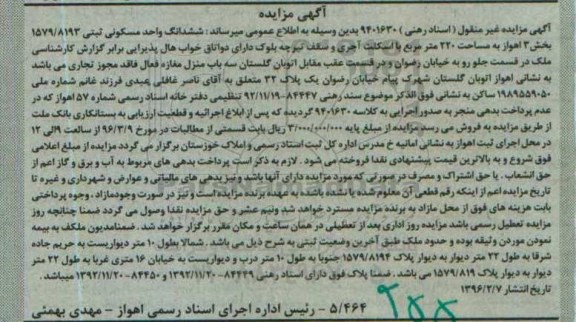 آگهی مزایده
آگهی مزایده غیر منقول ( اسناد رهنی ) ۹۴۰۱۶۳۰ بدین وسیله به اطلاع عمومی میرساند : ششدانگ واحد مسکونی ثبتی ۱۵۷۹/۸۱۹۳
بخش ۳ اهواز به مساحت ۲۲۰ متر مربع با اسکلت آجری و سقف تیرچه بلوک دارای دواتاق خواب هال پذیرایی برابر گزارش کارشناسی
ملک در قسمت جلو رو به خیابان رضوان و در قسمت عقب مقابل اتوبان گلستان سه باب منزل مغازه فعال فاقد مجوز تجاری می باشد
به نشانی اهواز اتوبان گلستان شهرک پیام خیابان رضوان یک پلاک ۳۲ متعلق به آقای ناصر غافلی عبدی فرزند غانم شماره ملی
۱۹۸۹۵۵۹۰۵۰ ساکن به نشانی فوق الذکر موضوع سند رهنی ۸۴۴۴۷-۹۲/۱۱/۱۹ تنظیمی دفتر خانه اسناد رسمی شماره ۵۷ اهواز که در
عدم پرداخت بدهی منجر به صدور اجرایی به کلاسه ۹۴۰۱۶۳۰ گردیده که پس از ابلاغ اجرائیه و قطعیت ارزیابی به بستانکاری بانک ملت
از طریق مزایده به فروش می رسد مزایده از مبلغ پایه ۳/۰۰۰/۰۰۰/۰۰۰ ریال بابت قسمتی از مطالبات در مورخ ۹۶/۳/۹ از ساعت ۹ الی ۱۲
در محل اجرای ثبت اهواز به نشانی امانیه خ مدرس اداره کل ثبت اسناد رسمی و املاک خوزستان برگزار می گردد مزایده از مبلغ اعلامی
فوق شروع و به بالاترین قیمت پیشنهادی نقدا فروخته می شود . لازم به ذکر است پرداخت بدهی های مربوط به آب و برق و گاز اعم از
حق انشعاب . یا حق اشتراک و مصرف در صورتی که مورد مزایده دارای آنها باشد و نیز بدهی های مالیاتی و عوارض و شهرداری و غیره تا
تاریخ مزایده اعم از اینکه رقم قطعی آن معلوم شده یا نشده باشد به عهده برنده مزایده است و نیز در صورت وجودمازاد ، وجوه پرداختی
بابت هزینه های فوق از محل مازاد به برنده مزایده مسترد خواهد شد ونیم عشر و حق مزایده نقدا وصول می گردد ضمنا چنانچه روز
مزایده تعطیل رسمی باشد مزایده روز اداری بعد از تعطیلی در همان ساعت و مکان مقرر برگزار خواهد شد . ضمنامدیون مکلف به بیمه
نمودن موردن و ثیقه بوده و حدود ملک طبق آخرین وضعیت ثبتی به شرح ذیل می باشد . شمالا بطول ۱۰ متر دیواریست به حریم جاده
شرقا به طول ۲۲ متر دیوار به دیوار پلاک ۱۵۷۹/۸۱۹۴ جنوبا به طول ۱۰ متر درب و دیواریست به خیابان ۱۶ متری غربا به طول ۲۲ متر
دیوار به دیوار پلاک ۱۵۷۹/۸۱۹ می باشد . ضمنا پلاک فوق دارای اسناد رهنی ۸۴۴۴۹-۱۳۹۲/۱۱/۲۰ و ۸۴۴۵۰-۱۳۹۲/۱۱/۲۰ میباشد .
تاریخ انتشار ۱۳۹۶/۲/۷
۵/۴۶۴ - رئیس اداره اجرای اسناد رسمی اهواز - مهدی بهمئی